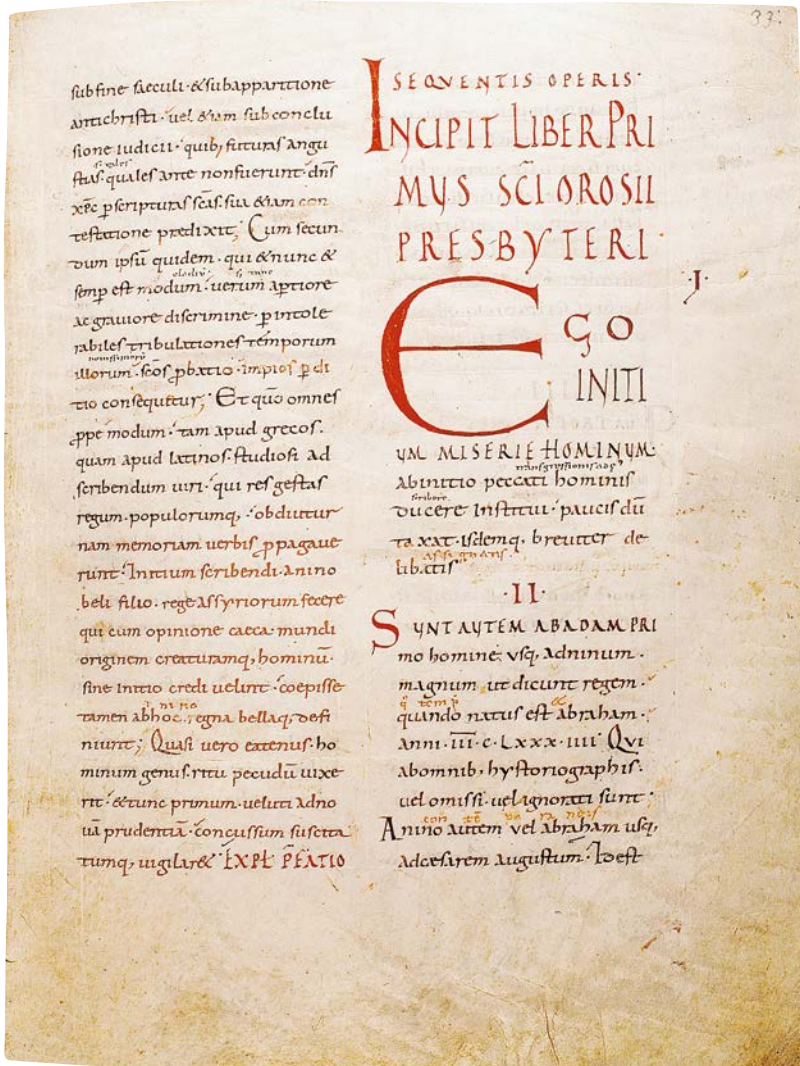 33:
sub fine saeculi · & sub apparitione
antichristi · uel &iam sub conclu
sione iudicii · quib; futuras angu
stias · quales ante non fuerunt · dn̄s
xp̄c p scripturas scās · sua &iam con
testatione predixit; Cum secun
dum ipsū quidem · qui & nunc &
semp est modum · uerum aptiore
ac grauiore discrimine · p intole
rabiles tribulationes temporum
nouissimorū
illorum · scōs p̱batio · impios p di
tio consequetur; Et quō omnes
p̱pe modum · tam apud grecos ·
quam apud latinos · studiosi ad
scribendum uiri · qui res gestas
regum · populorumq; · ob diutur
nam memoriam uerbis p̱pagaue
runt · Initium scribendi · A nino
beli filio · rege Assyriorum fecere
qui cum opinione caeca · mundi
originem creaturamq; hominū ·
sine initio credi uelint · coepisse
tamen ab hoc · regna bellaq; defi
niunt; Quasi uero eatenus · ho
minum genus · ritu pecudū uixe
rit · & tunc primum · ueluti ad no
uā prudentiā · concussum suscita
tumq; uigilar& · EXPŁ P̄FATIO
SEQVENTIS OPERIS ·
INCIPIT LIBER PRI
MUS SC̄I OROSII
PRESBYTERI
· I ·
EGO
INITI
UM MISERIE HOMINUM ·
transgressionis adę
Ab initio peccati hominis
scribere
ducere Institui · paucis dū
taxat · Isdemq; breuiter de
libatis
· II ·
SUNT AUTEM AB ADAM PRI
mo homine · vsq; ad ninum ·
magnum ut dicunt regem ·
quando natus est abraham ·
anni · III · c · Lxxx · IIII · Qui
ab omnib; hystoriographis ·
uel omissi · uel ignorati sunt ·
A nino autem vel abraham usq;
ad caesarem augustum · Id est